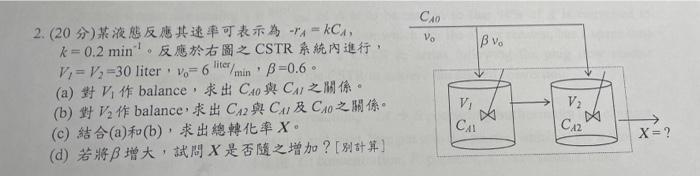 2. (20 分)某液態反應其速率可表示為 -rA = kCA,
k = 0.2 min⁻¹。反應於右圖之 CSTR 系統內進行,
V1 = V2 =30 liter, v0= 6 liter/min, β=0.6。
(a) 對 V1 作 balance, 求出 CA0 與 CA1 之關係。
(b) 對 V2 作 balance, 求出 CA2 與 CA1 及 CA0 之關係。
(c) 結合(a)和(b), 求出總轉化率 X。
(d) 若將β增大, 試問 X 是否隨之增加?[別計算]
CA0
v0
β v0
V1
CA1
V2
CA2
X=?